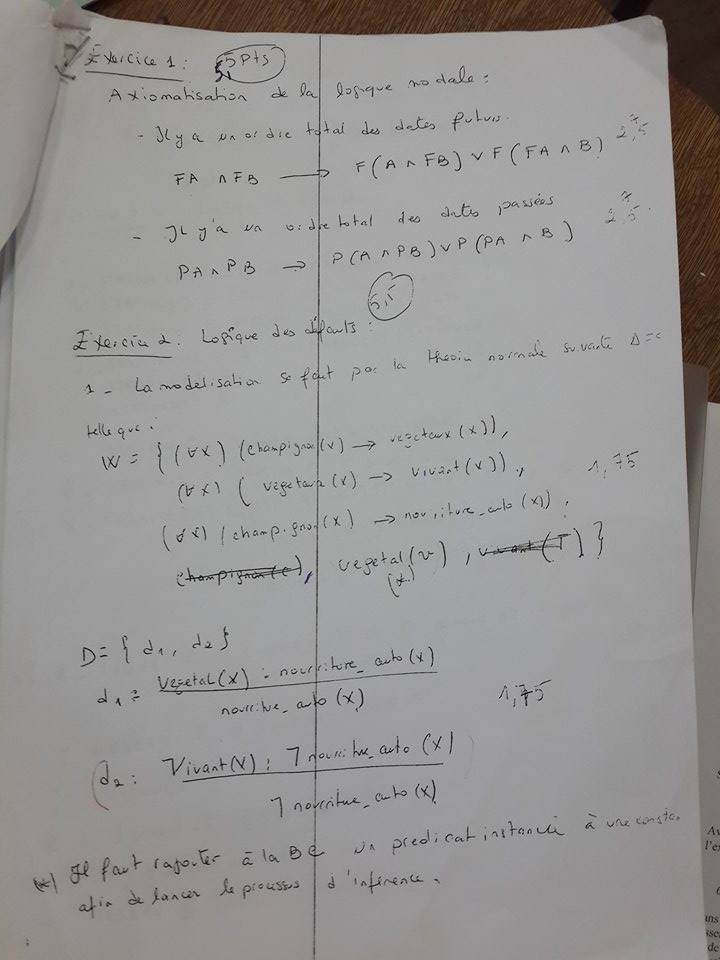 Exercice 1: 5pts
Axiomatisation de la logique modale:
- Il y a un ordre total des dates futurs.
FA ∧ FB → F(A ∧ FB) ∨ F(FA ∧ B) 2,75
- Il y'a un ordre total des dates passées
PA ∧ PB → P(A ∧ PB) ∨ P(PA ∧ B) 2,75
5,5
Exercice 2. Logique des défauts:
1 - La modélisation se fait par la théorie normale suivante Δ=<
telle que:
W = { (∀x) (champignon(x) → vegetaux(x)),
(∀x) (vegetaux(x) → vivant(x)),
(∀x) (champignon(x) → nourriture_auto(x)), 1,75
champignon(c), vegetal(v), vivant(T) }
(*)
D = { d1, d2 }
d1 = Vegetal(x) : nourriture_auto(x)
nourritue_auto(x)
1,75
d2: Vivant(x) : ⌉ nourritue_auto(x)
⌉ nourritue_auto(x)
(*) Il faut rajouter à la BC un predicat instancié à une constan
afin de lancer le processus d'inférence.